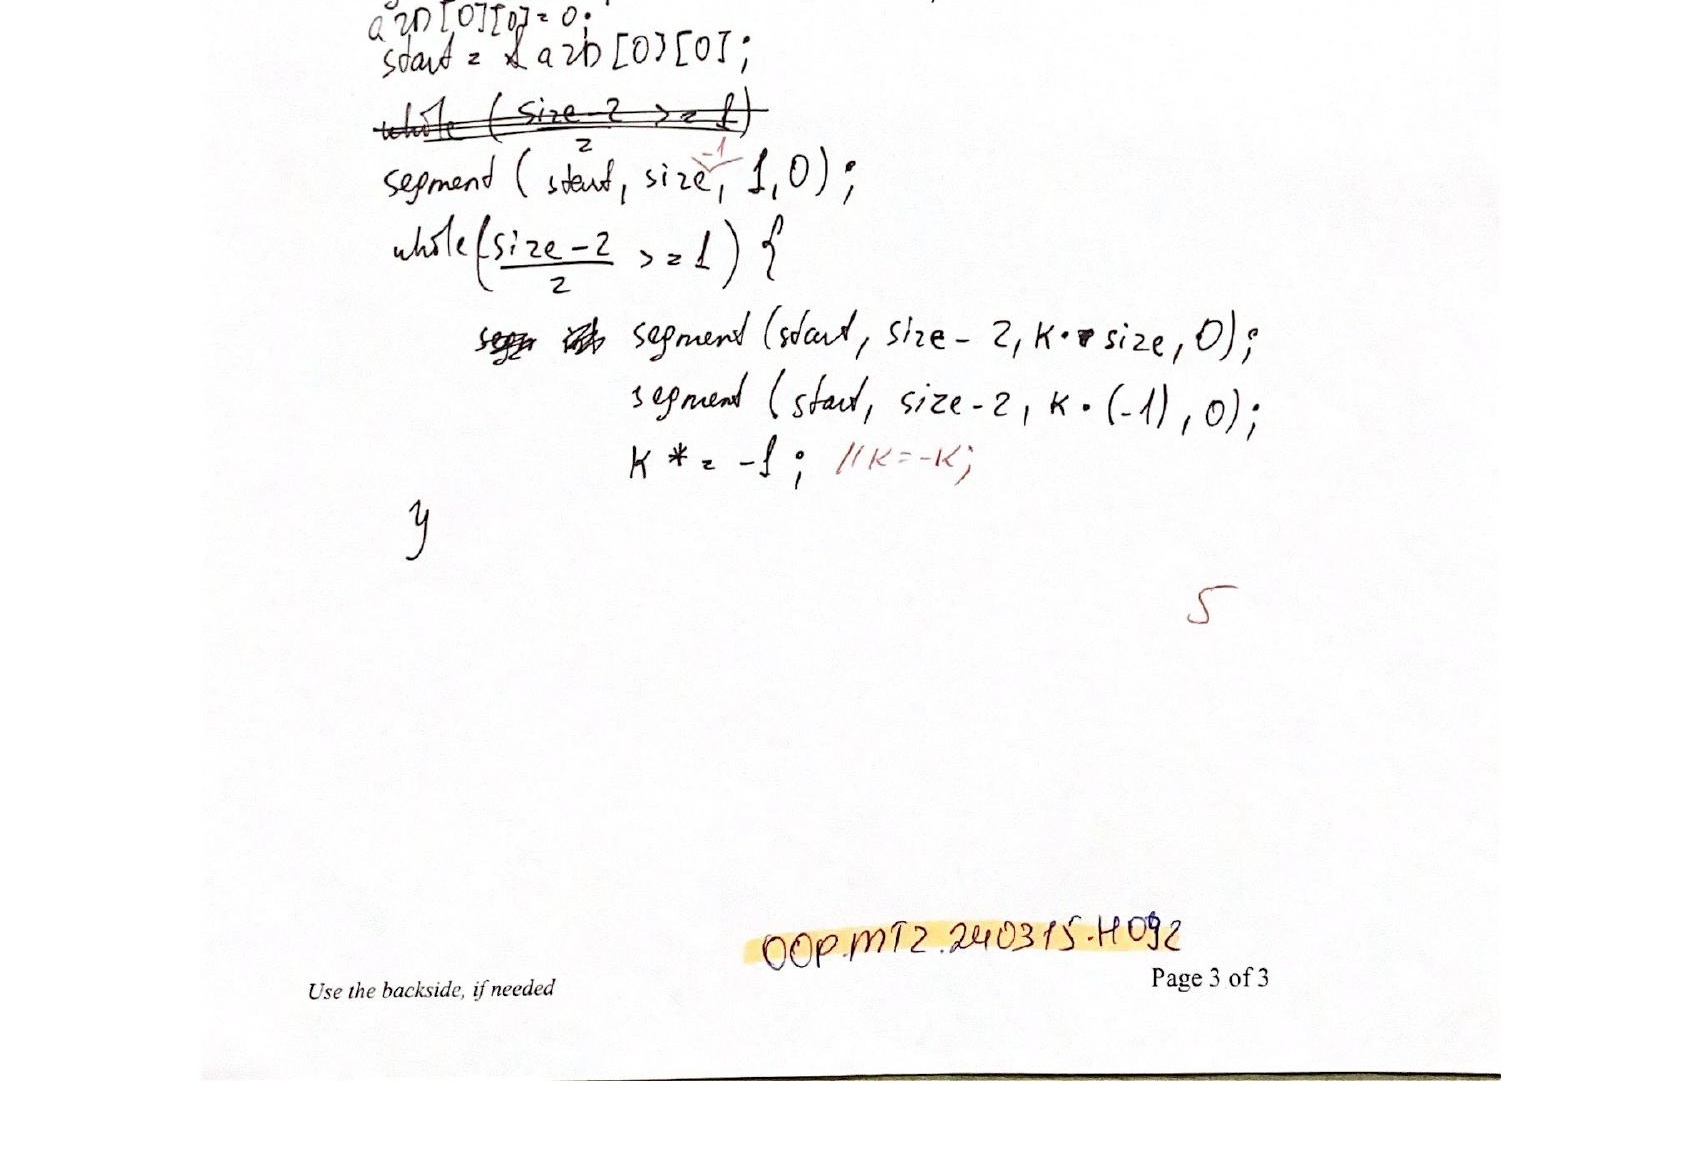 a2D[0][0] = 0;
start = &a2D[0][0];
while (size-2/2 >= 1)
-1
segment (start, size, 1, 0);
while (size-2/2 >= 1) {
segment (start, size - 2, k · size, 0);
segment (start, size - 2, k · (-1), 0);
k *= -1; //k=-k;
}
5
OOP.MT2.240315.H092
Use the backside, if needed
Page 3 of 3